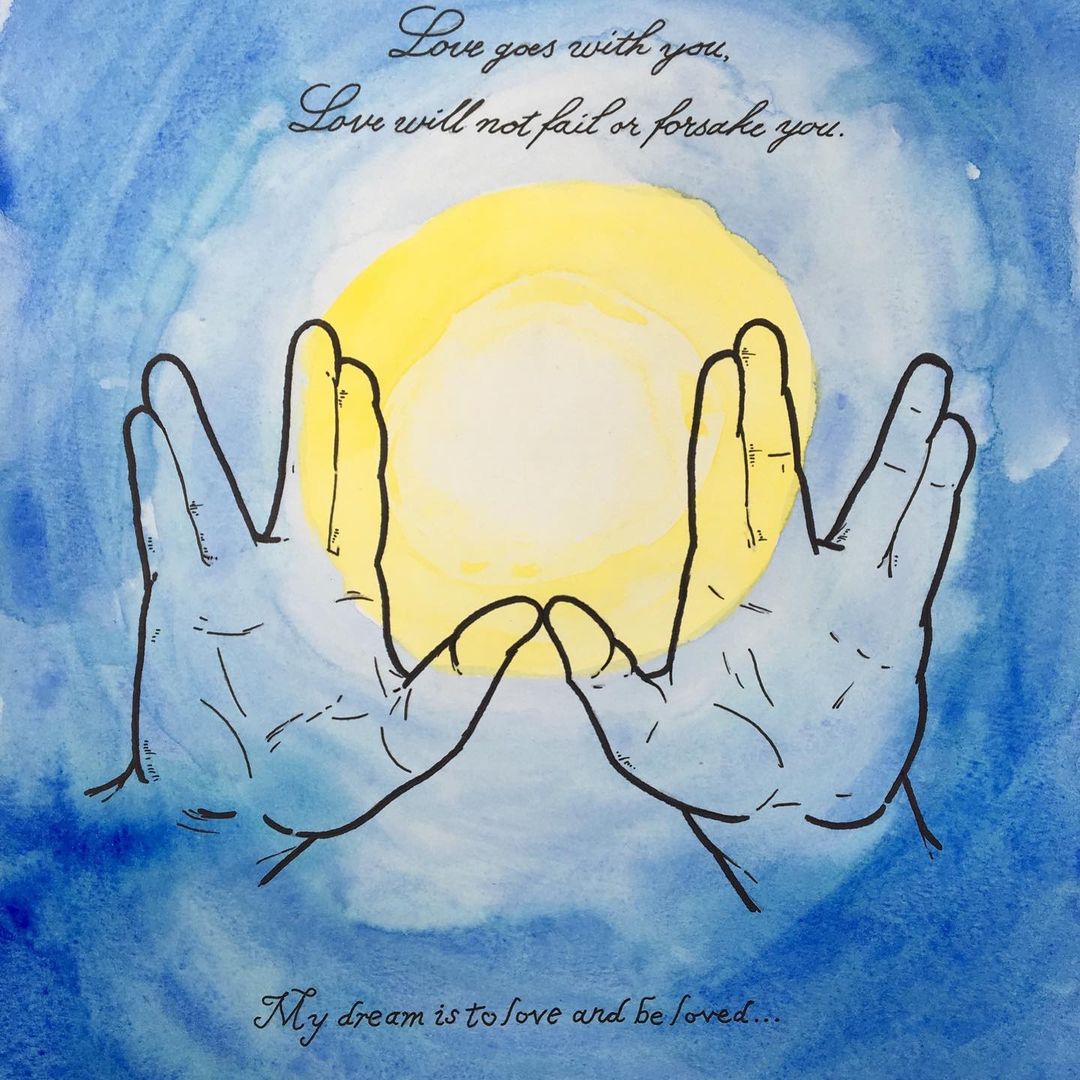 Love goes with you,
Love will not fail or forsake you.
My dream is to love and be loved...